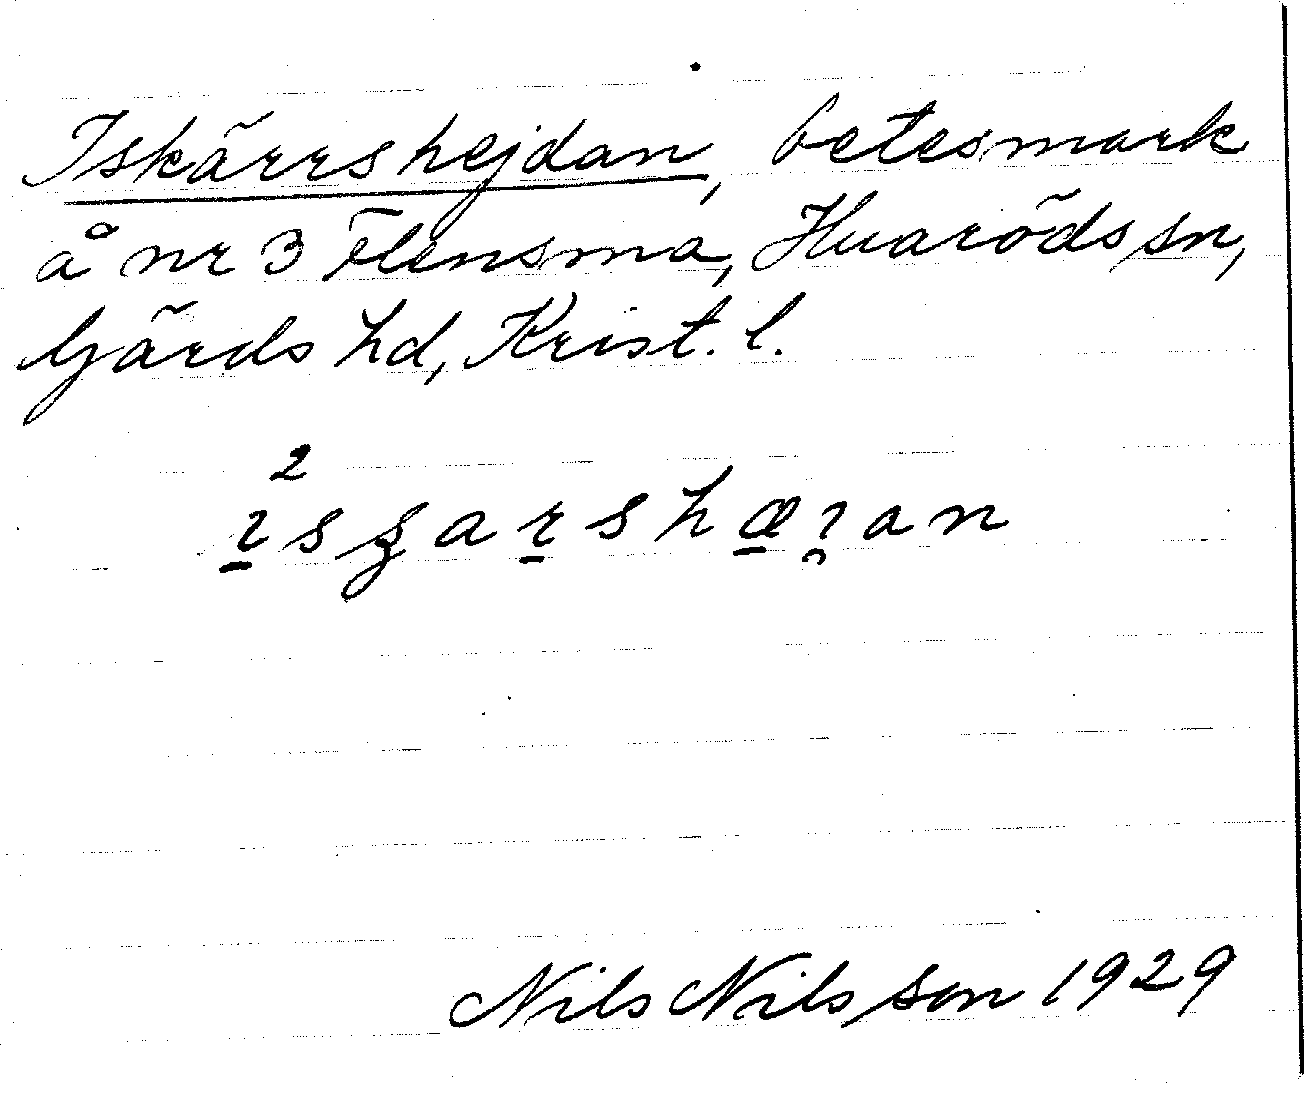 Iskärrshejdan, betesmark
å nr 3 Flensma, Huaröds sn,
Gärds hd, Krist. l.
2
ɪ̱sʒaṟshæ̱ɪ̯an
Nils Nilsson 1929